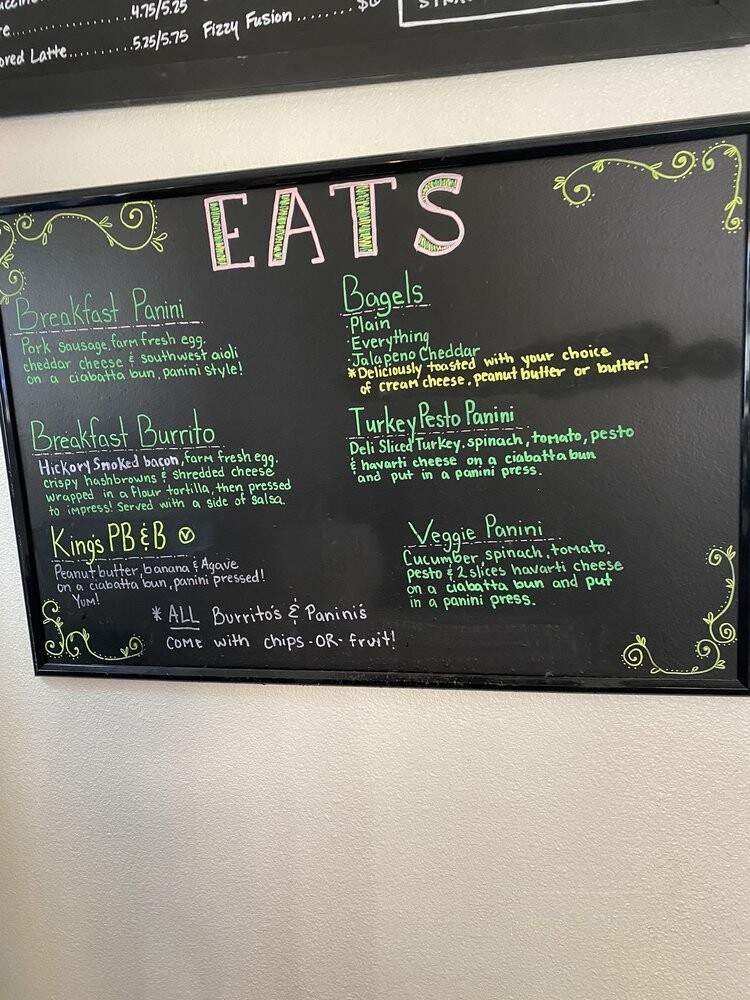 4.75/5.25
ored Latte..........5.25/5.75
Fizzy Fusion........
EATS
Breakfast Panini
Pork sausage, farm fresh egg.
cheddar cheese & southwest aioli
on a ciabatta bun, panini style!
Breakfast Burrito
Hickory Smoked bacon, farm fresh egg.
crispy hashbrowns & shredded cheese
wrapped in a flour tortilla, then pressed
to impress! Served with a side of salsa.
King's PB & B V
Peanut butter, banana & Agave
on a ciabatta bun, panini pressed!
Yum!
Bagels
·Plain
·Everything
·Jalapeno Cheddar
*Deliciously toasted with your choice
of cream cheese, peanut butter or butter!
Turkey Pesto Panini
Deli Sliced Turkey, spinach, tomato, pesto
& havarti cheese on a ciabatta bun
and put in a panini press.
Veggie Panini
Cucumber, spinach, tomato,
pesto & 2 slices havarti cheese
on a ciabatta bun and put
in a panini press.
* ALL Burrito's & Panini's
come with chips -OR- fruit!